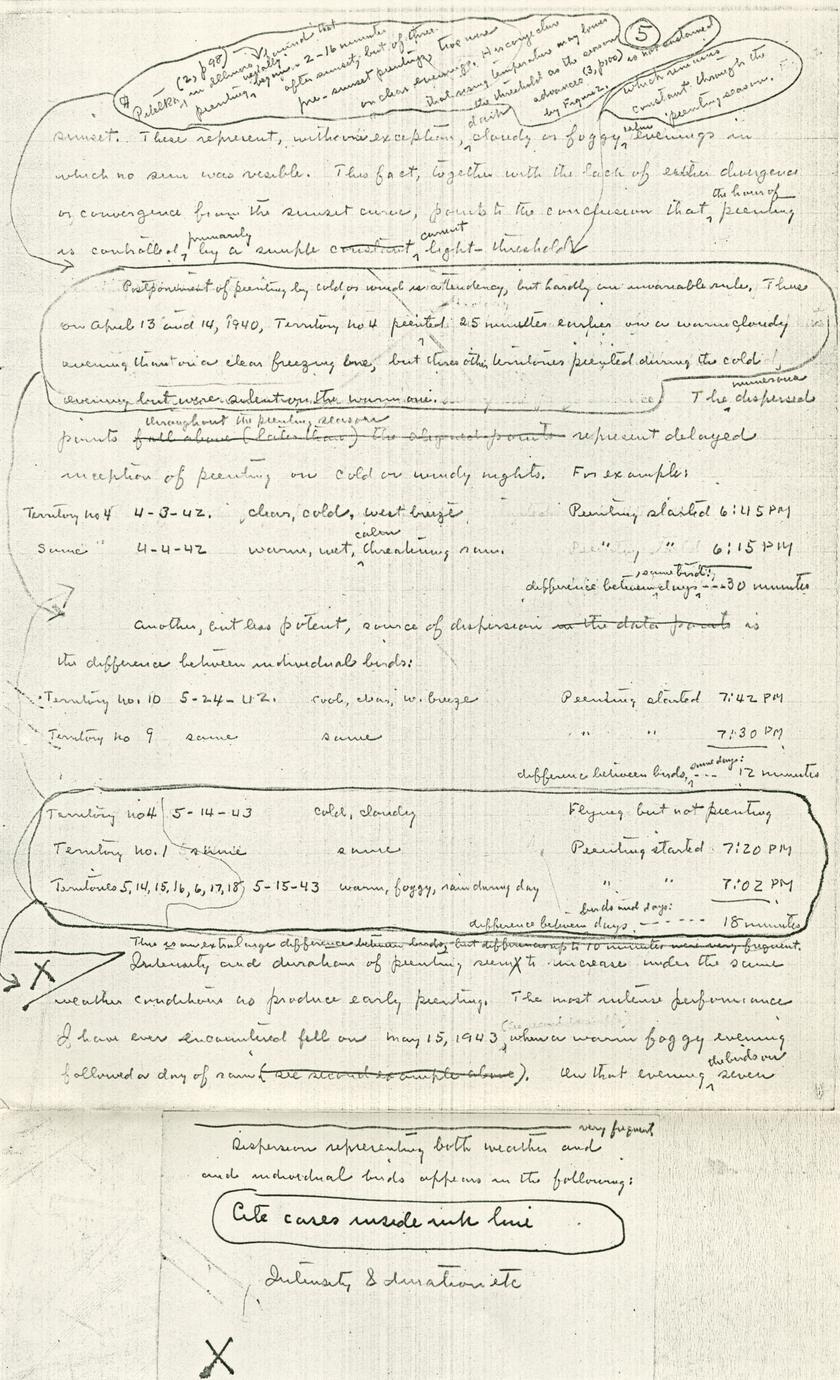 5
Pitelka (2, p98) found that
in Illinois, usually
peenting began 2-16 minutes
after sunset, but of three
pre-sunset peentings two were
on clear evenings. His conjecture
that rising temperature may lower
the threshold as the season
advances (3, p100) is not sustained
by Figure 2.
which remains
constant through the
peenting season.
dark calm
sunset. These represent, without exception, cloudy or foggy evenings in
which no sun was visible. This fact, together with the lack of either divergence
the hour of
or convergence from the sunset curve, points to the conclusion that peenting
primarily current
is controlled by a simple constant light-threshold
Postponement of peenting by cold or wind is a tendency, but hardly an invariable rule. Thus
on April 13 and 14, 1940, Territory no 4 peented 25 minutes earlier on a warm cloudy
evening than on a clear freezing one, but three other territories peented during the cold
evening but were silent on the warm one.
numerous
The dispersed
throughout the peenting season
points fall above (later than) the aligned points represent delayed
inception of peenting on cold or windy nights. For example:
Territory no 4 4-3-42. clear, cold, west breeze Peenting started 6:45 PM
calm
Same " 4-4-42 warm, wet, threatening rain. " " 6:15 PM
, same bird:
difference between days --- 30 minutes
Another, but less potent, source of dispersion in the data points is
the difference between individual birds:
Territory no. 10 5-24-42. cool, clear, w. breeze Peenting started 7:42 PM
Territory no 9 same same " " 7:30 PM
same days:
difference between birds, --- 12 minutes
Territory no 4 5-14-43 cold, cloudy Flying but not peenting
Territory no. 1 same same Peenting started 7:20 PM
Territories 5, 14, 15, 16, 6, 17, 18 5-15-43 warm, foggy, rain during day " " 7:02 PM
birds and days:
difference between days ------ 18 minutes
This is an extra large difference between birds, but differences up to 10 minutes were very frequent.
X
Intensity and duration of peenting seem to increase under the same
weather conditions as produce early peenting. The most intense performance
I have ever encountered fell on May 15, 1943, when a warm foggy evening
the birds on
followed a day of rain (see second example above). On that evening seven
very frequent
Dispersion representing both weather and
and individual birds appears in the following:
Cite cases inside ink line
Intensity & duration etc
X